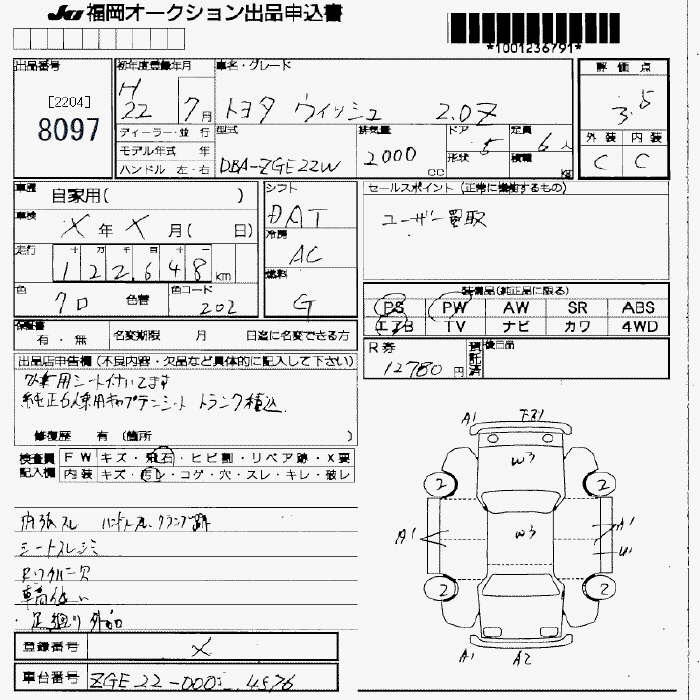 JU 福岡オークション出品申込書
*1001236791*
出品番号
[2204]
8097
初年度登録年月
H
22 7月
ディーラー・並 行
モデル年式 年
ハンドル 左・右
車名・グレード
トヨタ ウィッシュ 2.0Z
型式
DBA-ZGE22W
排気量
2000 CC
ドア
5
形状
定員
6人
積載
KG
評価点
3.5
外装 内装
C C
車歴
自家用( )
車検
X 年 X 月( 日)
走行
十 万 千 百 十
122,648 km
色
クロ
色替
色コード
202
シフト
DAT
冷房
AC
燃料
G
セールスポイント (正常に機能するもの)
ユーザー買取
装備品(純正品に限る)
PS PW AW SR ABS
エアB TV ナビ カワ 4WD
保証書
有・無
名変期限 月 日迄に名変できる方
R券
12780円
預託済
後日品
出品店申告欄 (不良内容・欠品など具体的に記入して下さい)
純正6人乗用キャプテンシート トランク積込
修復歴 有 (箇所 )
検査員記入欄
FW キズ・飛石・ヒビ割・リペア跡・X要
内装 キズ・汚レ・コゲ・穴・スレ・キレ・破レ
内張スレ
シートスレシミ
足廻り外品
登録番号
X
車台番号
A1
W3
2
2
A1
W3
A1
2
2
A1
A2